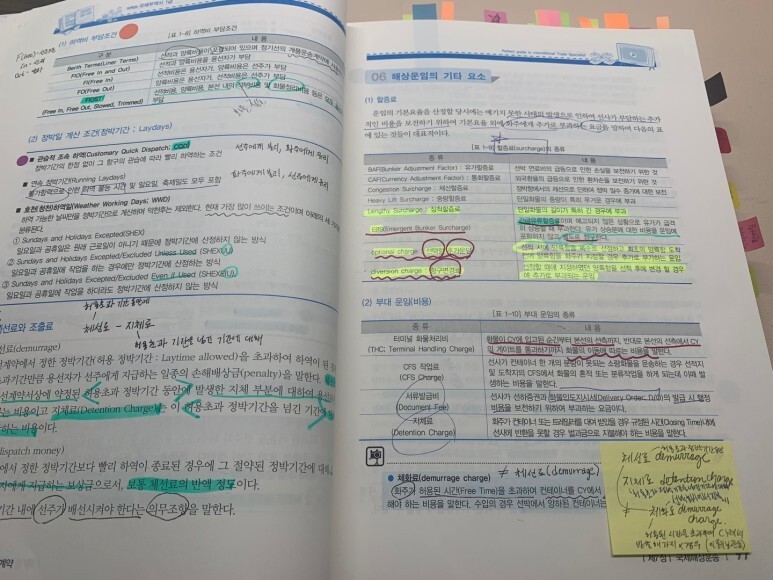 (1) 하역비 부담조건
[표 1-8] 하역비 부담조건
구 분
내 용
Berth Term(Liner Terms)
선적과 양륙비용이 포함되어 있으며 정기선의 개품운송계약에
FIO(Free In and Out)
선적비용과 양륙비용을 용선자가 부담
FI(Free In)
선적비용은 용선자, 양륙비용은 선주가 부담
FO(Free Out)
양륙비용은 용선자, 선적비용은 선주가 부담
FIOST
(Free In, Free Out, Stowed, Trimmed)
부담
(2) 정박일 계산 조건(정박기간 : Laydays)
■ 관습적 조속 하역(Customary Quick Dispatch; CQD)
정박기간의 한정 없이 그 항구의 관습에 따라 빨리 하역하는 조건
■ 연속 정박기간(Running Laydays)
불가항력으로 인한 하역 불능 시간 및 일요일, 축제일도 모두 포함
■ 호천(청천)하역일(Weather Working Days; WWD)
하역 가능한 날씨만을 정박기간으로 계산하며 악천후는 제외한다. 현재 가장 많이 쓰이는 조건이며 아래와 세 가지
분류된다.
① Sundays and Holidays Excepted(SHEX)
일요일과 공휴일은 원래 근로일이 아니기 때문에 정박기간에 산정하지 않는 방식
② Sundays and Holidays Excepted/Excluded Unless Used (SHEXUU)
일요일과 공휴일에 작업을 하는 경우에만 정박기간에 산정하는 방식
③ Sundays and Holidays Excepted/Excluded Even if Used (SHEXEIU)
일요일과 공휴일에 작업을 하더라도 정박기간에 산정하지 않는 방식
체선료 - 지체료
선료와 조출료
선료(demurrage)
계약에서 정한 정박기간(허용 정박기간 : Laytime allowed)을 초과하여 하역이 완
과기간만큼 용선자가 선주에게 지급하는 일종의 손해배상금(penalty)을 말한다.
선계약서상에 약정된 허용초과 정박기간 동안에 발생한 지체 부분에 대하여
는 비용이고 지체료(Detention Charge)는 이 허용초과 정박기간을 넘긴 기간
하는 비용이다.
ispatch money)
에서 정한 정박기간보다 빨리 하역이 종료된 경우에 그 절약된 정박기간에 대해
자에게 지급하는 보상금으로서, 보통 체선료의 반액 정도이다.
기간 내에 선주가 배선시켜야 한다는 의무조항을 말한다.
계약
06 해상운임의 기타 요소
(1) 할증료
운임의 기본요율을 산정할 당시에는 예기치 못한 사태의 발생으로 인하여 선사가 부담하는 추가
적인 비용을 보전하기 위하여 기본요율 외에 화주에게 추가로 부과하는 요금을 말하며 다음의 표
에 있는 것들이 대표적이다.
[표 1-9] 할증료(surcharge)의 종류
종 류
내 용
BAF(Bunker Adjustment Factor) : 유가할증료
선박 연료비의 급등으로 인한 손실을 보전하기 위한 것
CAF(Currency Adjustment Factor) : 통화할증료
외국환율의 급등으로 인한 환차손을 보전하기 위한 것
Congestion Surcharge : 체선할증료
정박항에서의 체선으로 인하여 정박 일수 증가에 대한 보전
Heavy Lift Surcharge : 중량할증료
단일화물의 중량이 특히 무거운 경우에 부과
Lengthy Surcharge : 장척할증료
단일화물의 길이가 특히 긴 경우에 부과
EBS(Emergent Bunker Surcharge)
optional charge : 선택항 추가운임
diversion charge : 항구변경료
선적할 때에 지정하였던 양륙항을 선적 후에 변경 할 경우
에 추가로 부과되는 운임
(2) 부대 운임(비용)
[표 1-10] 부대 운임의 종류
종 류
내 용
터미널 화물처리비
(THC; Terminal Handling Charge)
화물이 CY에 입고된 순간부터 본선의 선측까지, 반대로 본선의 선측에서 CY
의 게이트를 통과하기까지 화물의 이동에 따르는 비용을 말한다.
CFS 작업료
(CFS Charge)
선사가 컨테이너 한 개의 분량이 못되는 소량화물을 운송하는 경우 선적지
및 도착지의 CFS에서 화물의 혼적 또는 분류작업을 하게 되는데 이때 발
생하는 비용을 말한다.
서류발급비
(Document Fee)
선사가 선하증권과 화물인도지시서(Delivery Order; D/O)의 발급 시 행정
비용을 보전하기 위하여 부과하는 요금이다.
지체료
(Detention Charge)
화주가 컨테이너 또는 트레일러를 대여 받았을 경우 규정된 시간(Closing Time)내에
선사에 반환을 못할 경우 벌과금으로 지불해야 하는 비용을 말한다.
≠ 체선료(demurrage)
● 체화료(demurrage charge)
화주가 허용된 시간(Free Time)을 초과하여 컨테이너를 CY에서
해야 하는 비용을 말한다. 수입의 경우 선박에서 양하된 컨테이너
체선료 demurrage
지체료 detention charge
≠ 체화료 demurrage
charge.